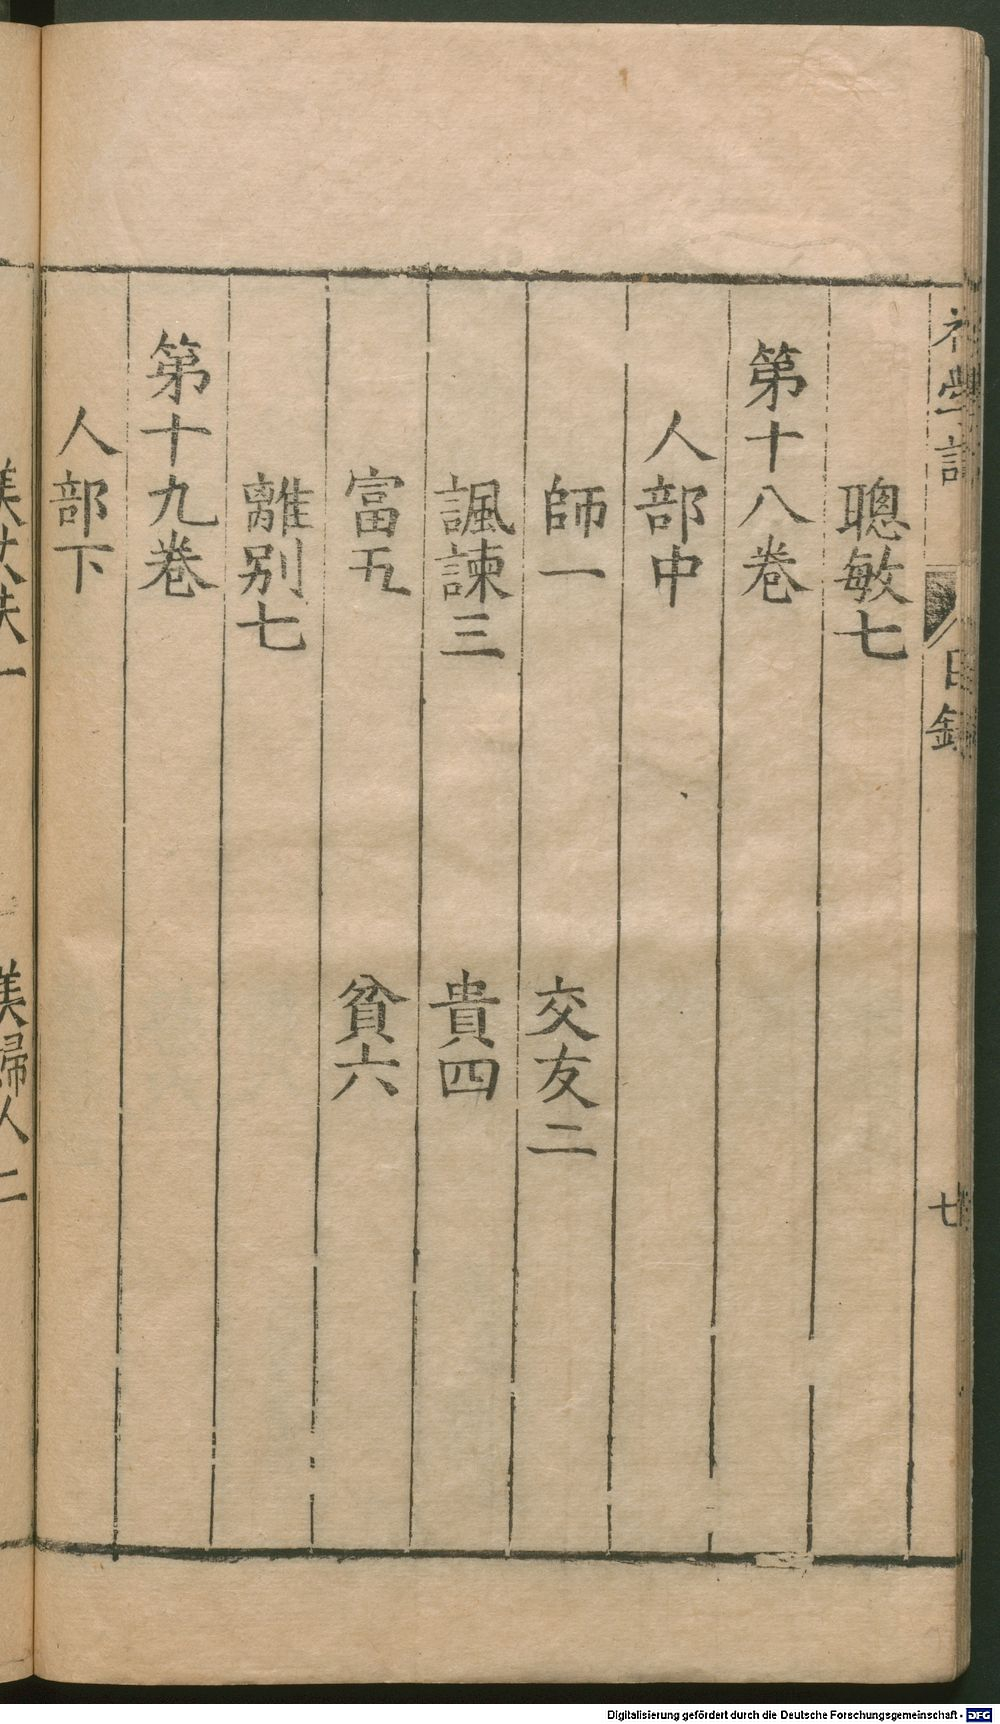 初學記
目錄
七
聰敏七
第十八卷
人部中
師一 交友二
諷諫三 貴四
富五 貧六
離别七
第十九卷
人部下
美丈夫一 美婦人二
Digitalisierung gefördert durch die Deutsche Forschungsgemeinschaft - DFG